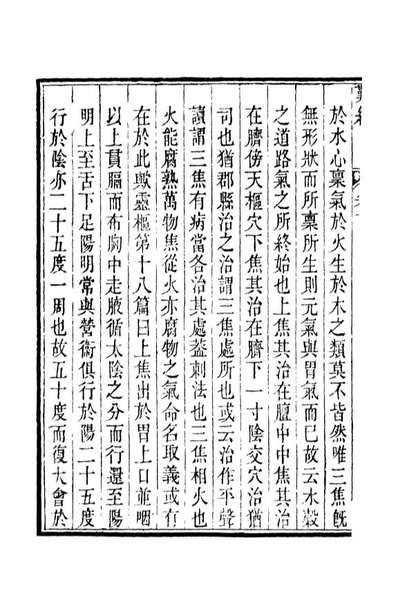 於水心稟氣於火生於木之類莫不皆然唯三焦既
無形狀而所稟所生則元氣與胃氣而已故云水穀
之道路氣之所終始也上焦其治在膻中中焦其治
在臍傍天樞穴下焦其治在臍下一寸陰交穴治猶
司也猶郡縣治之治謂三焦處所也或云治作平聲
讀謂三焦有病當各治其處蓋刺法也三焦相火也
火能腐熟萬物焦從火亦腐物之氣命名取義或有
在於此歟靈樞第十八篇曰上焦出於胃上口並咽
以上貫膈而布胸中走腋循太陰之分而行還至陽
明上至舌下足陽明常與營衛俱行於陽二十五度
行於陰亦二十五度一周也故五十度而復大會於